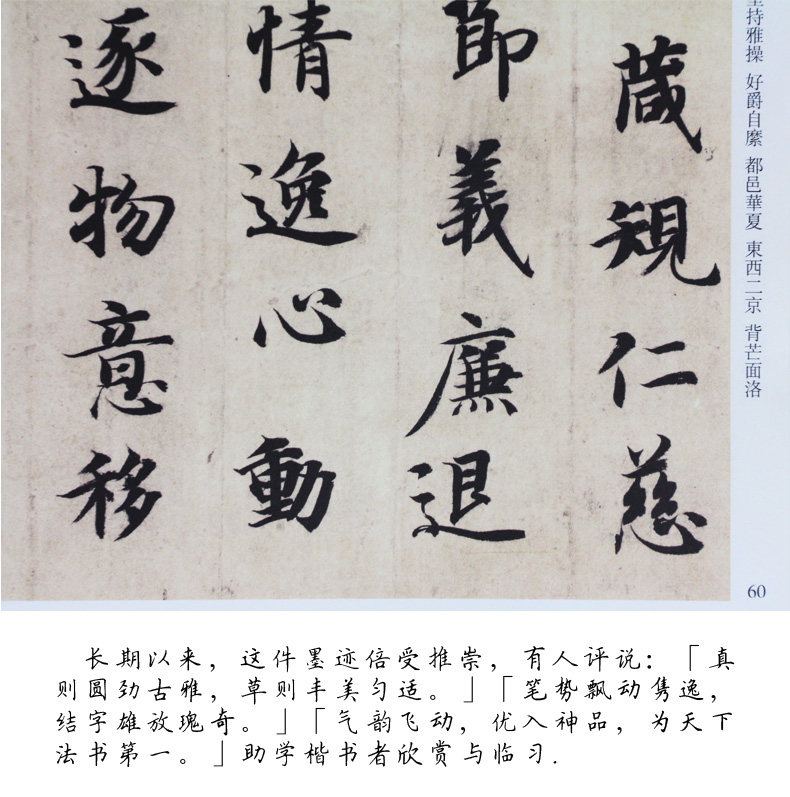 堅持雅操 好爵自縻 都邑華夏 東西二京 背芒面洛
箴規仁慈
節義廉退
情逸心動
逐物意移
60
长期以来，这件墨迹倍受推崇，有人评说：「真
则圆劲古雅，草则丰美匀适。」「笔势飘动隽逸，
结字雄放瑰奇。」「气韵飞动，优入神品，为天下
法书第一。」助学楷书者欣赏与临习.